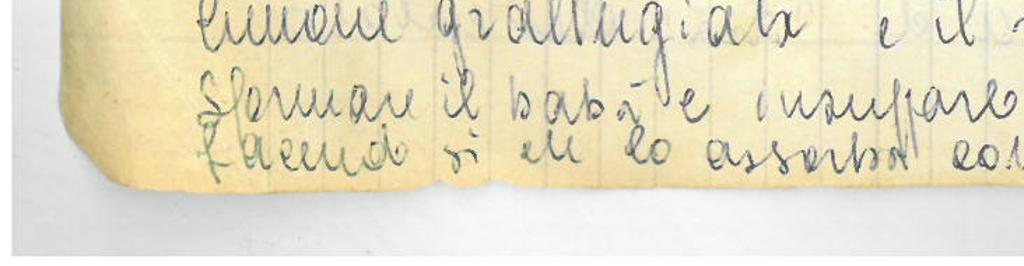 limone grattugiato e il
Sformare il babà e inzuppare
facendo si che lo assorba